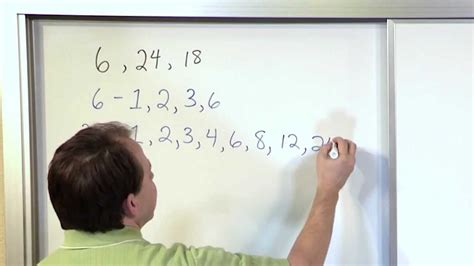 6, 24, 18
6 - 1, 2, 3, 6
1, 2, 3, 4, 6, 8, 12, 2